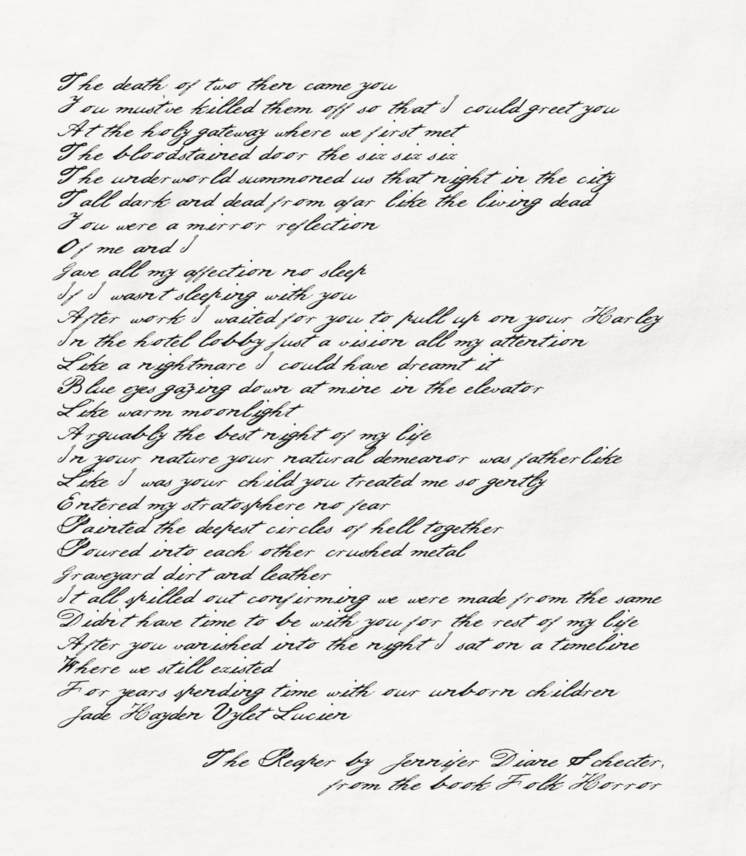 The death of two then came you
You must've killed them off so that I could greet you
At the holy gateway where we first met
The bloodstained door the six six six
The underworld summoned us that night in the city
Tall dark and dead from afar like the living dead
You were a mirror reflection
Of me and I
Gave all my affection no sleep
If I wasn't sleeping with you
After work I waited for you to pull up on your Harley
In the hotel lobby just a vision all my attention
Like a nightmare I could have dreamt it
Blue eyes gazing down at mine in the elevator
Like warm moonlight
Arguably the best night of my life
In your nature your natural demeanor was father like
Like I was your child you treated me so gently
Entered my stratosphere no fear
Painted the deepest circles of hell together
Poured into each other crushed metal
Graveyard dirt and leather
It all spilled out confirming we were made from the same
Didn't have time to be with you for the rest of my life
After you vanished into the night I sat on a timeline
Where we still existed
For years spending time with our unborn children
Jade Hayden Vylet Lucien
The Reaper by Jennifer Diane Schecter,
from the book Folk Horror